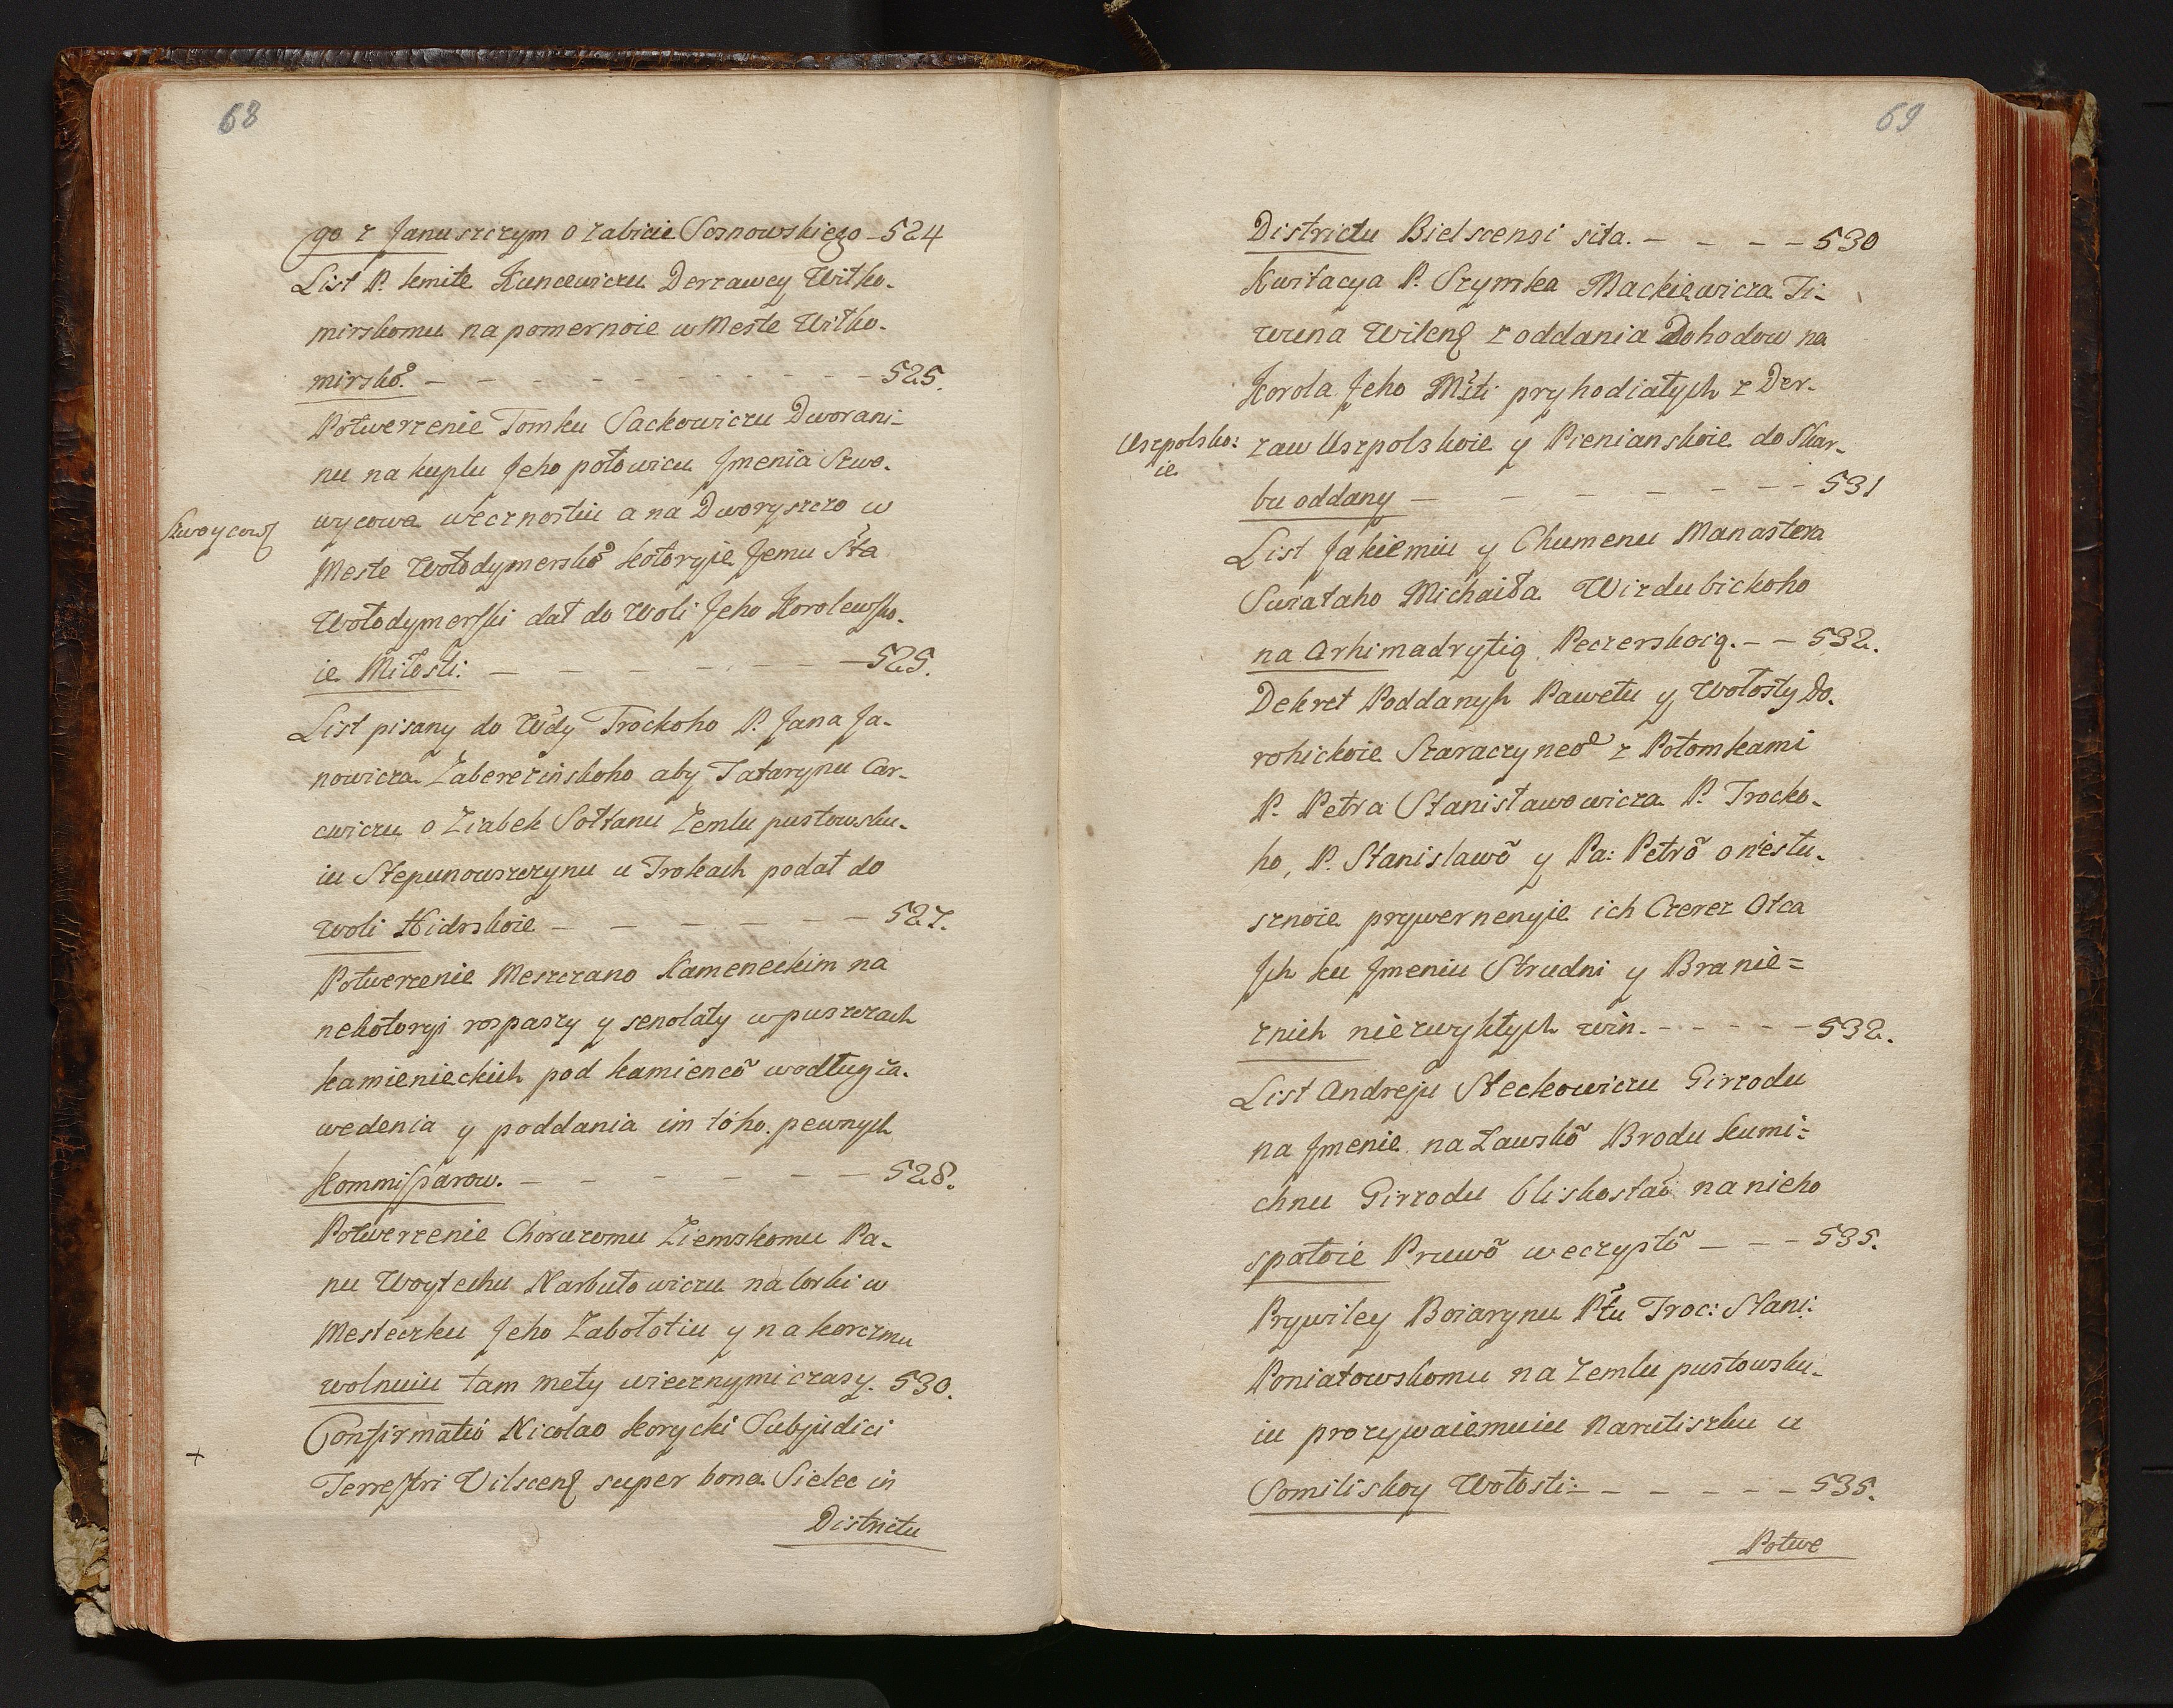 68
go z Januszczym o zabicie Sosnowskiego - 524
List P. Semite Kuncewiczu Derzawcy Wilko-
mirskomu na pomernoie w Meste Wilko-
mirsko͠. - - - - - - - - - 525.
Potwerzenie Tomku Sackowiczu Dworani-
nu na kuplu Jeho połowicu Jmenia Szwo-
wycowa wecznostiu a na Dworyszczo w
Szwoycow
Meste Wołodymersko͠ kotoryie Jemu Sta
Wołodymerski dał do Woli Jeho Korolewsko-
ie Miłosti: - - - - - - - 525.
List pisany do Wdy Trockoho P. Jana Ja-
nowicza Zaberezinskoho aby Tatarynu Car-
cwiczu o Ziabek Sołtanu Zemlu pustowsku-
iu Stepunowszczynu u Trokach podał do
woli Hidrskoie - - - - - - 527.
Potwerzenie Meszczano Kameneckim na
nekotoryi rospaszy y senolaty w puszczach
kamienieckich pod kamienco͠ wodług ia-
wedenia y poddania im toho. pewnych
Kommissarow. - - - - - - 528.
Potwerzenie Choruzomu Ziemskomu Pa-
nu Woytechu Narbutowiczu na torhi w
Mesteczku Jeho Zabołotiu y na korczmu
wolnuiu tam mety wiecznymi czasy. 530.
+
Confirmatio Nicolao Korycki Subjudici
Terrestri Vilscens super bona Sielec in
Districtu
69
Districtu Bielscensi sita. - - - - 530
Kwitacya P. Szymka Mackiewicza Ti-
wuna Wilens z oddania Dohodow na
Korola Jeho Msti pryhodiałych z Der-
Uszpolsko:
ie
zaw Uszpolskoie y Pienianskoie do Skar-
bu oddany - - - - - - - 531
List Jakiemiu y Chumenu Manastera
Swiataho Michaiła Wizdubickoho
na Arhimadrytią Peczerskoią. - - 532.
Dekret Poddanyh Pawełu y Wołosty Do-
rohickoie Szaraczyneo͠ z Potomkami
P. Petra Stanisławowicza P. Trocko-
ho, P. Stanislawo͠ y Pa: Petro͠ o niestu-
sznoie prywernenyie ich Czerez Otca
Jch ku Jmeniu Strudni y Branie=
znich niezwykłych win. - - - - - 532.
List Andreju Steckowiczu Girzodu
na Jmenie na Lawsko͠ Brodu Kumi=
chnu Girzodu bliskostao na nieho
spałoie Pruwo͠ weczysto͠ - - - 535.
Prywiley Boiarynu Płu Troc: Stani:
Poniatowskomu na Zemlu pustowsku-
iu prozywaiemuiu Narutiszku u
Somiliskoy Wołosti: - - - - - - 535.
Potwe